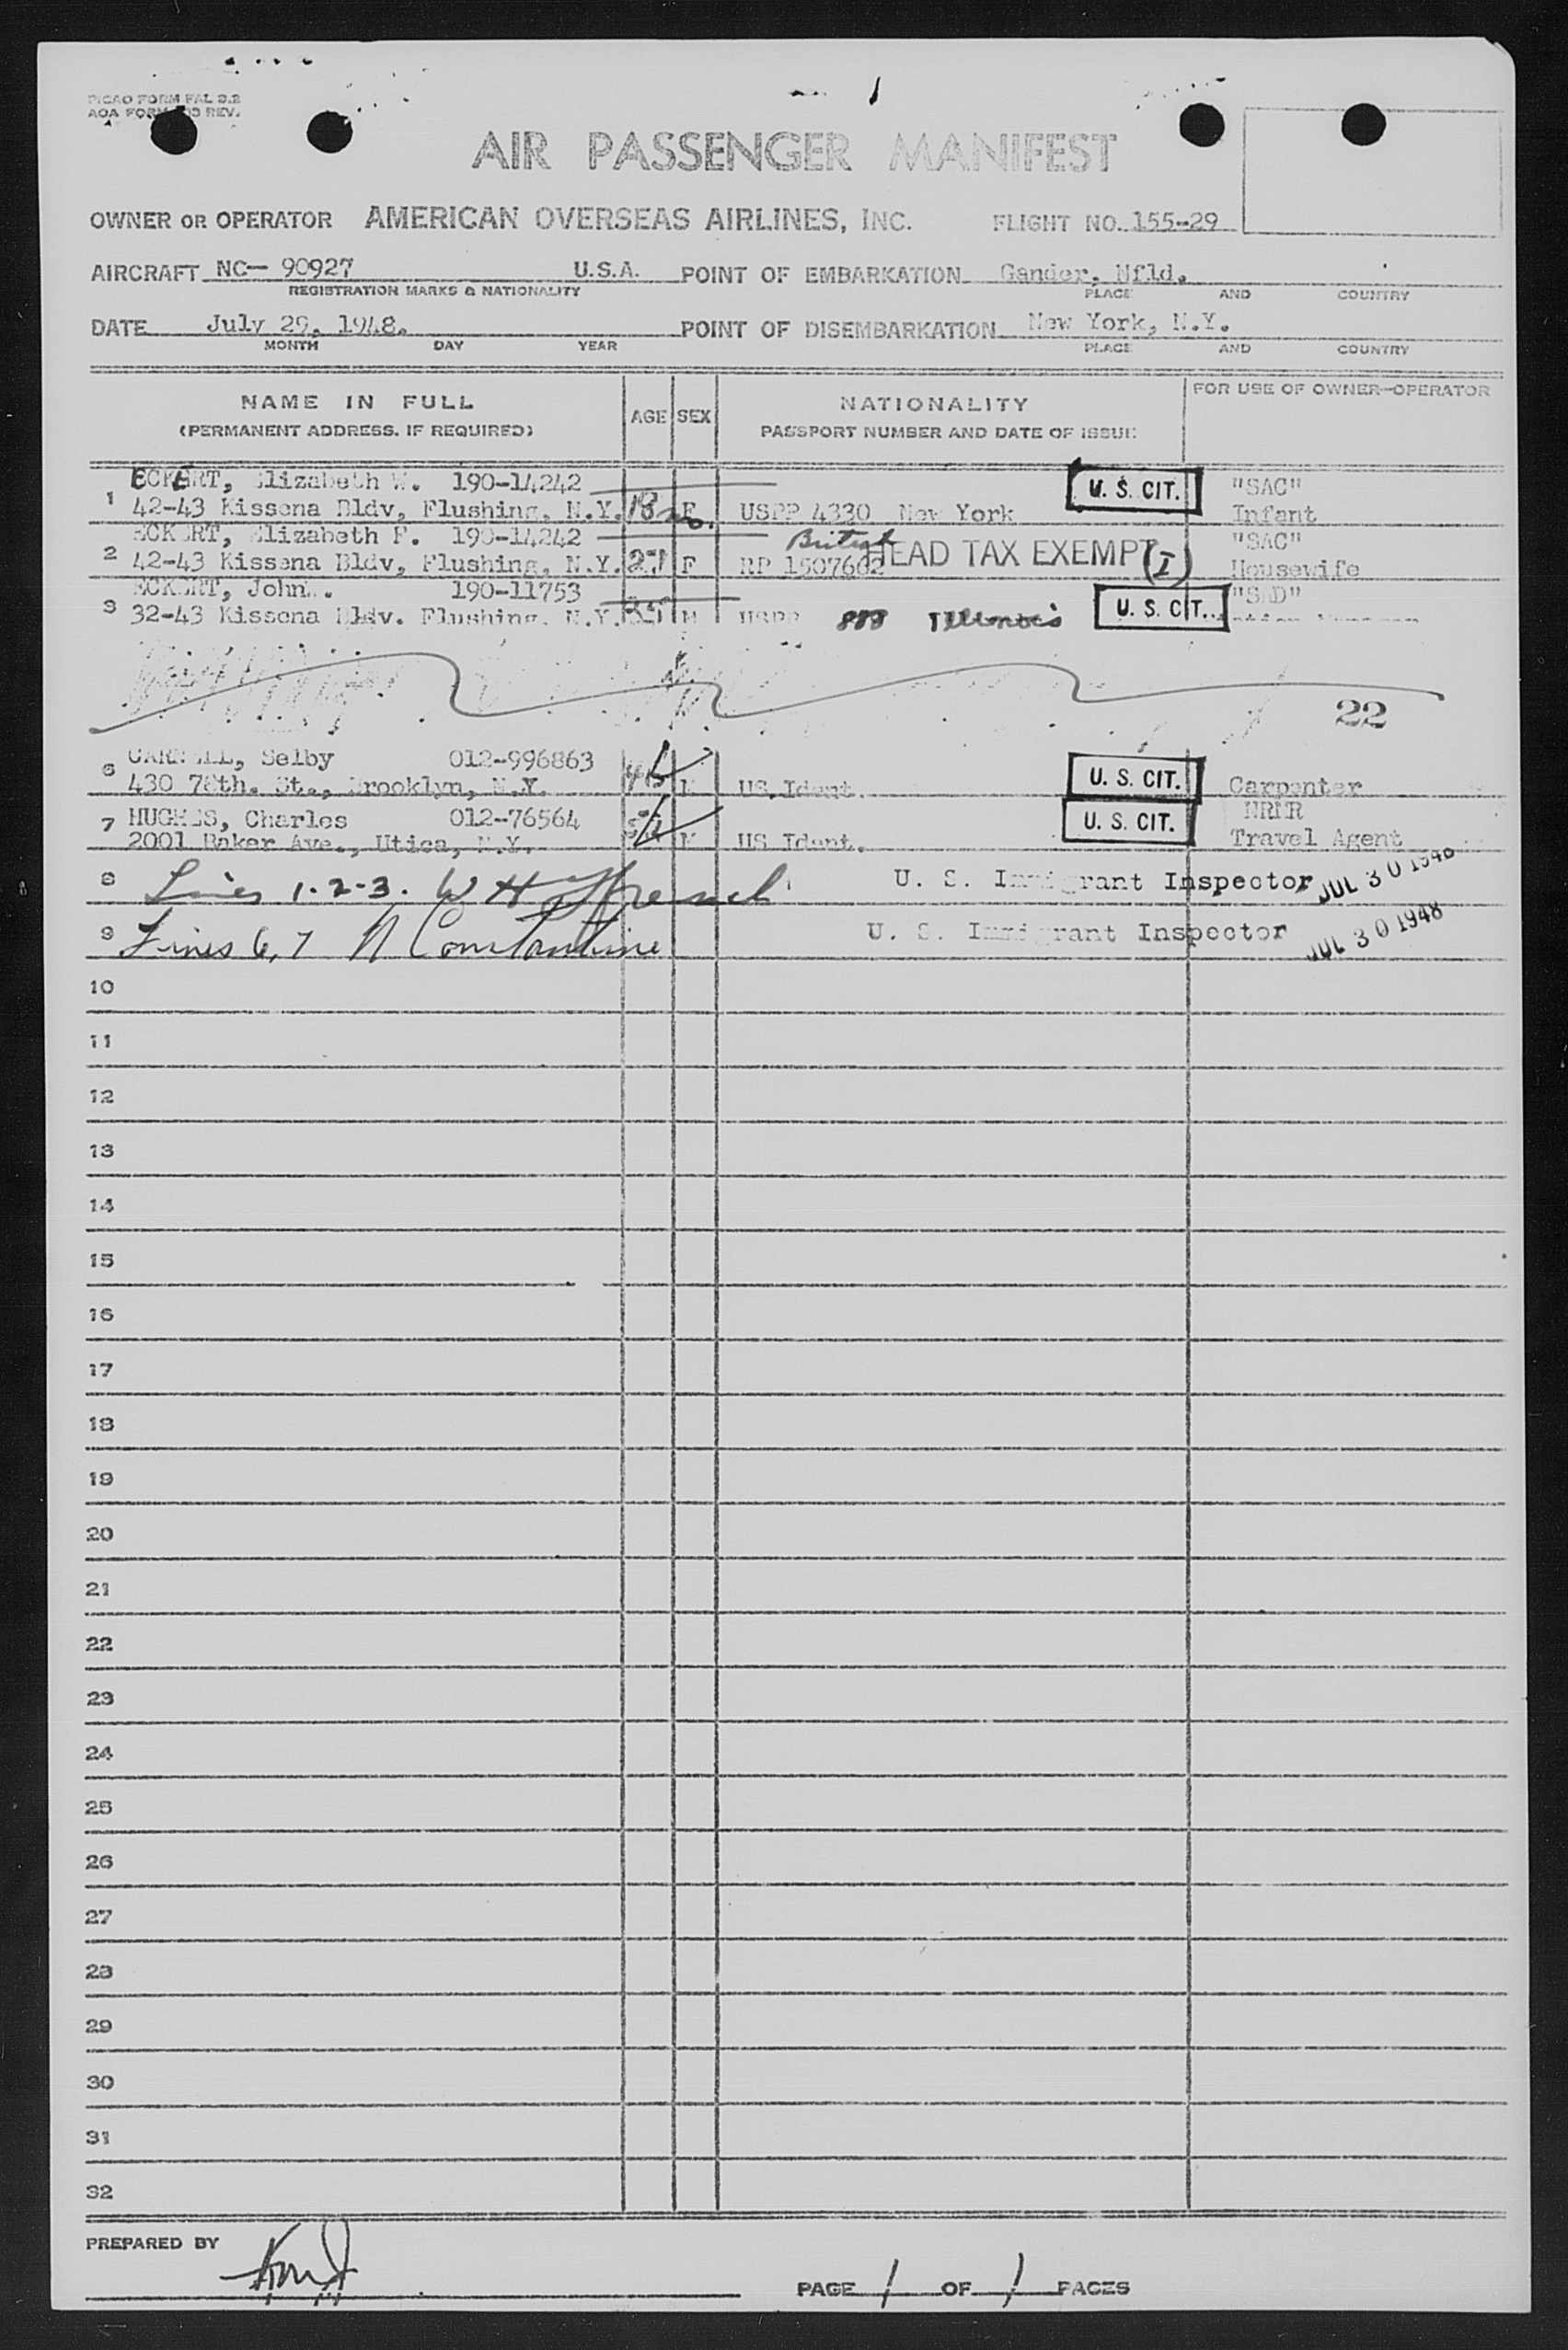 PICAO FORM FAL 3.2
AOA FORM REV.
AIR PASSENGER MANIFEST
OWNER OR OPERATOR AMERICAN OVERSEAS AIRLINES, INC. FLIGHT NO. 155-29
AIRCRAFT NC- 90927 U.S.A. POINT OF EMBARKATION Gander, Nfld.
REGISTRATION MARKS & NATIONALITY PLACE AND COUNTRY
DATE July 29, 1948. POINT OF DISEMBARKATION New York, N.Y.
MONTH DAY YEAR PLACE AND COUNTRY
NAME IN FULL AGE SEX NATIONALITY FOR USE OF OWNER-OPERATOR
(PERMANENT ADDRESS, IF REQUIRED) PASSPORT NUMBER AND DATE OF ISSUE
ECKERT, Elizabeth W. 190-14242 U. S. CIT. "SAC"
1 42-43 Kissena Bldv, Flushing, N.Y. F USPP 4330 New York Infant
ECKERT, Elizabeth F. 190-14242 British HEAD TAX EXEMPT (I) "SAC"
2 42-43 Kissena Bldv, Flushing, N.Y. 27 F 1507602 Housewife
ECKERT, John 190-11753 U. S. CIT.
3 32-43 Kissena Bldv. Flushing, N.Y. M USPP 888 Illinois
22
Selby 012-996863 U. S. CIT.
6 430 78th. St., Brooklyn, N.Y. M US Ident. Carpenter
HUGHES, Charles 012-76564 U. S. CIT.
7 2001 Baker Ave., Utica, N.Y. M US Ident. Travel Agent
8 Lines 1-2-3. W H Ffrench U. S. Immigrant Inspector JUL 30 1948
9 Lines 6, 7 N Constantine U. S. Immigrant Inspector JUL 30 1948
10
11
12
13
14
15
16
17
18
19
20
21
22
23
24
25
26
27
28
29
30
31
32
PREPARED BY
PAGE 1 OF 1 PAGES